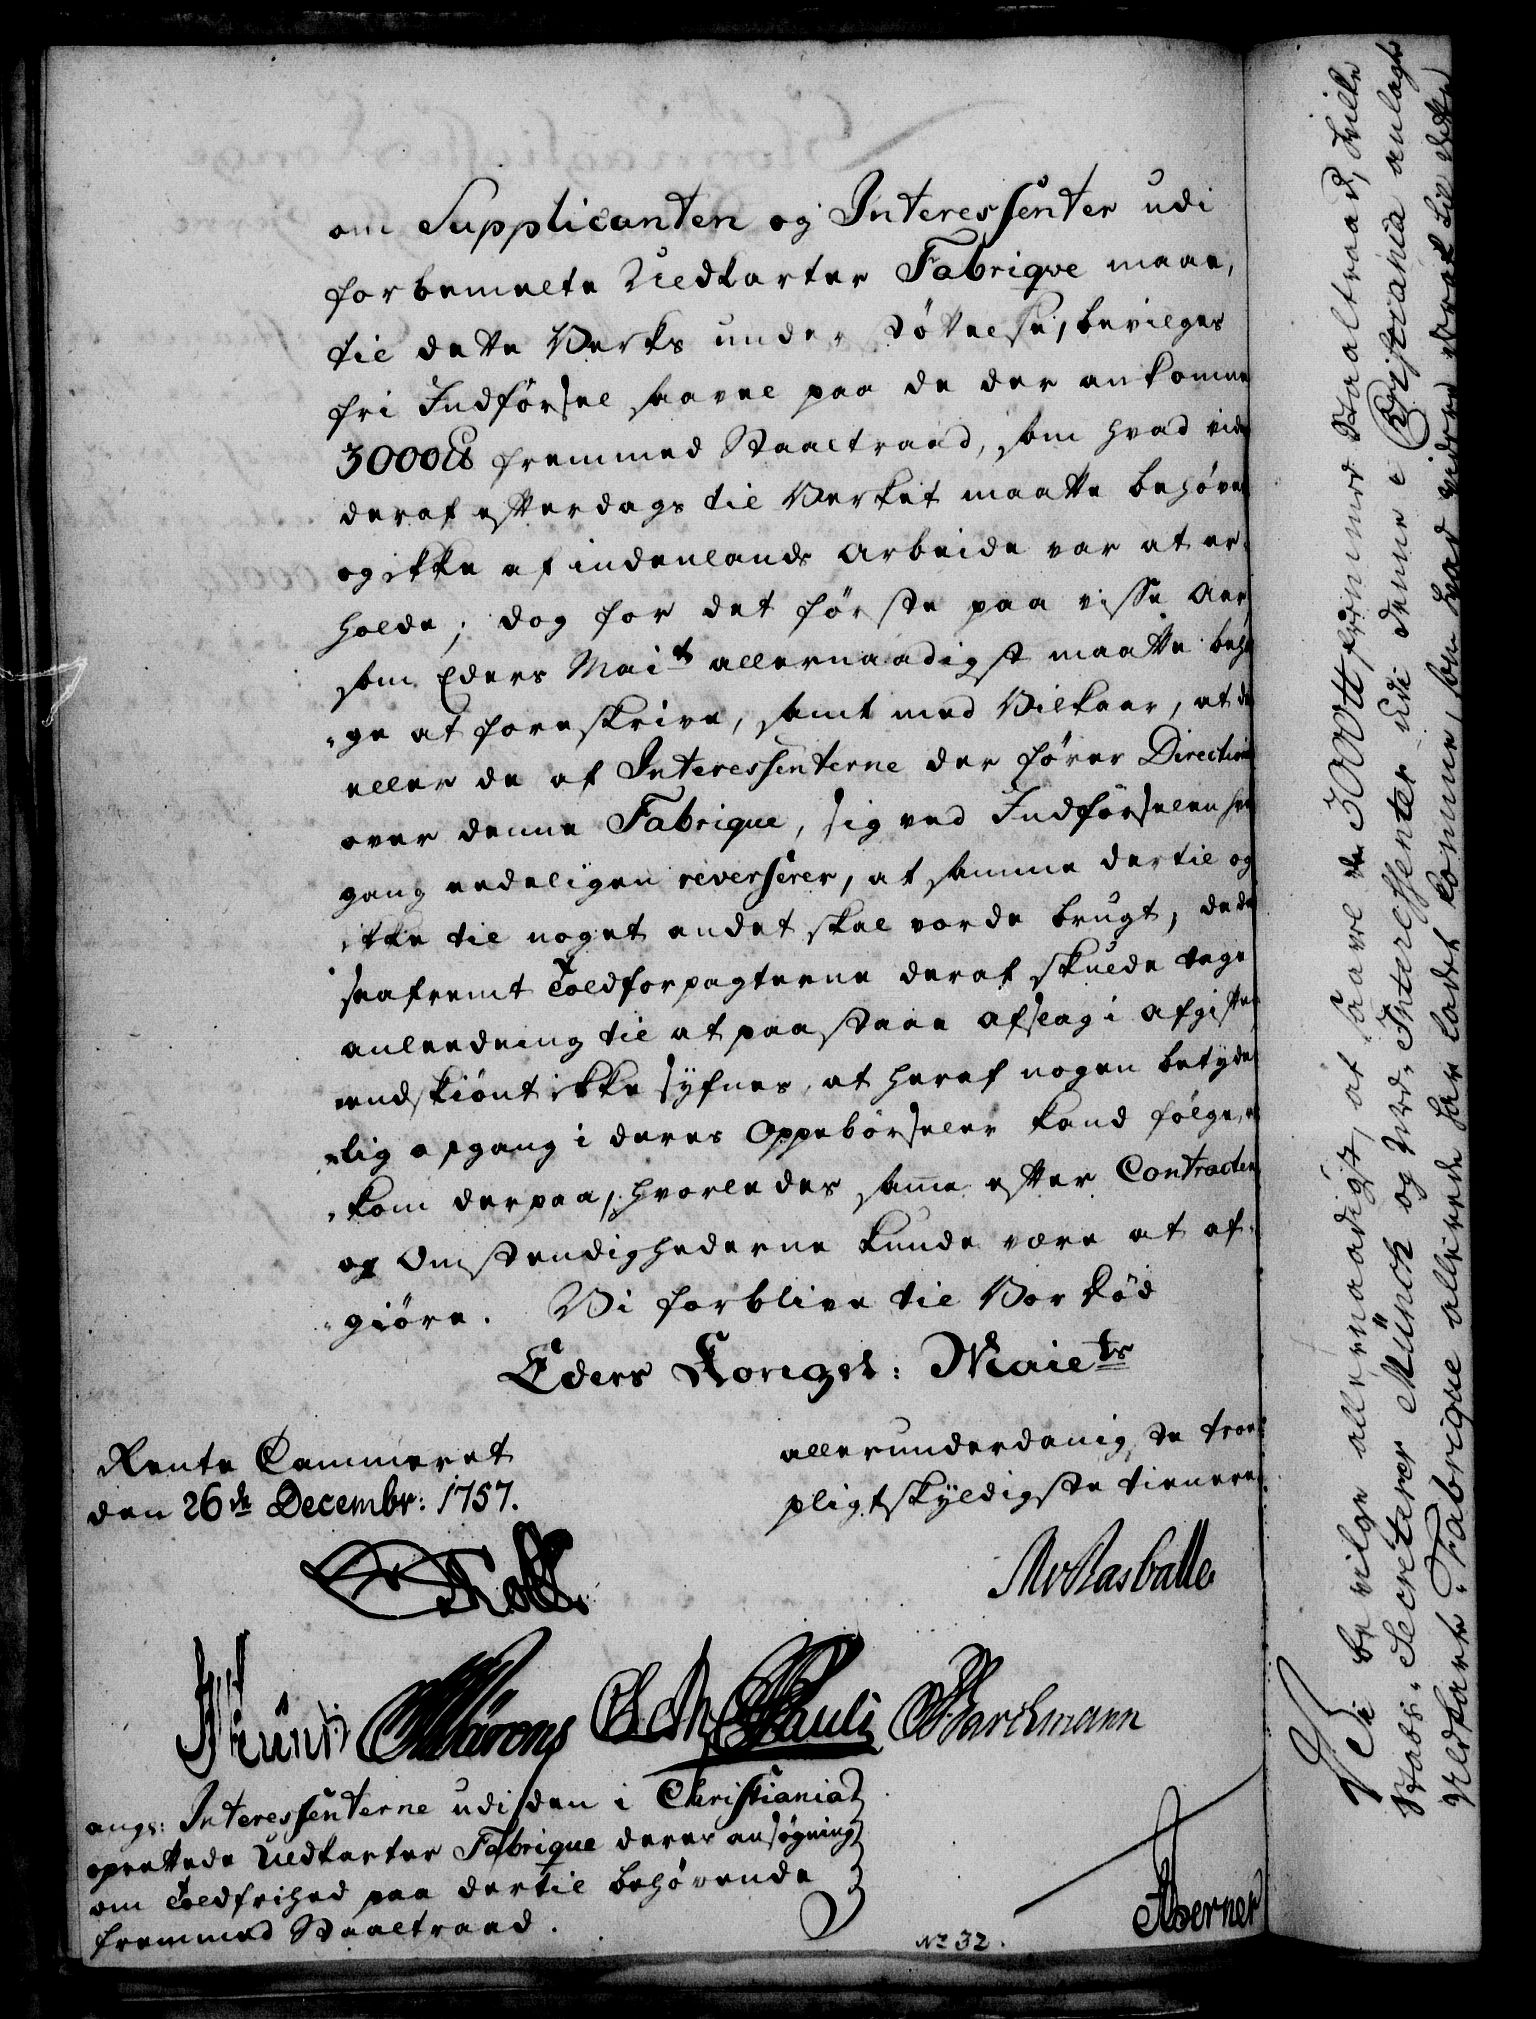 om Supplicanten og Interessenter udi
forbemelte Uldkarter Fabriqve maae,
til dette Verks understøttelse, bevilges
fri Indførsel saavel paa de der ankomne
3000 ℔ fremmed Staaltraad, som hvad vide
deraf efterdags til Verket maatte behøves
og ikke af indenlands Arbeide var at er¬
holde; dog for det første paa visse Aar
som Eders Mait allernaadigst maatte beha
ge at foreskrive, samt med Vilkaar, at de
eller de af Interessenterne der fører Direction
over denne Fabrique, sig ved Indførselen hver
gang eedeligen reverserer, at samme dertil og
ikke til noget andet skal vorde brugt, dede
saafremt Toldforpagterne deraf skulde tage
anleedning til at paastaae afslag i Afgiften
endskiønt ikke syfnes, at heraf nogen betyde
lig afgang i deres Oppebørseler kand følge,
kom derpaa, hvorledes samme efter Contracten
og Omstendighederne kunde være at af¬
giøre. Vi forblive til Vor Død
Eders Kongel: Maiets
Rente Cammeret
den 26de Decembr: 1757.
allerunderdanigste troe
pligtskyldigste tienere
Rasballe
Pauli
Barchmann
angl: Interessenterne udi den i Christiania
oprettede Uldkarter Fabrique deres ansøgning
om Toldfrihed paa dertil behøvende
fremmed Staaltraad.
Berner
No 32.
Vi bevilge allernaadigst, at saavel de 3000 ℔ fremmed Staaltraad, hvilke
Stads-Secreterer Münch og hørde Interessenter udi denne i Christiania anlagte
Uldkarte-Fabrique allerede har ladet komme, som hvad videre deraf til dette